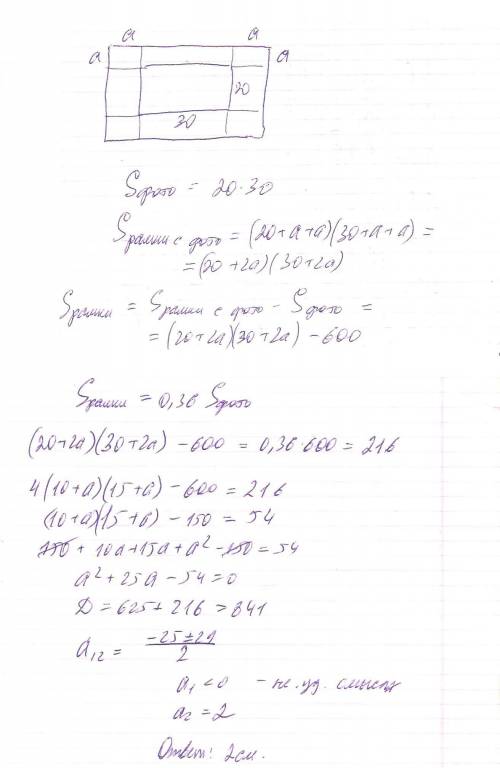 a a
a a
20
30
Sфото = 20·30
Sрамки с фото = (20+a+a)(30+a+a) =
= (20+2a)(30+2a)
Sрамки = Sрамки с фото - Sфото =
= (20+2a)(30+2a) - 600
Sрамки = 0,36 Sфото
(20+2a)(30+2a) - 600 = 0,36·600 = 216
4(10+a)(15+a) - 600 = 216
(10+a)(15+a) - 150 = 54
150 + 10a+15a+a² - 150 = 54
a²+25a-54=0
D = 625+216 = 841
a₁₂ = (-25±29)/2
a₁<0 - не уд. смыслу
a₂ = 2
Ответ: 2см.